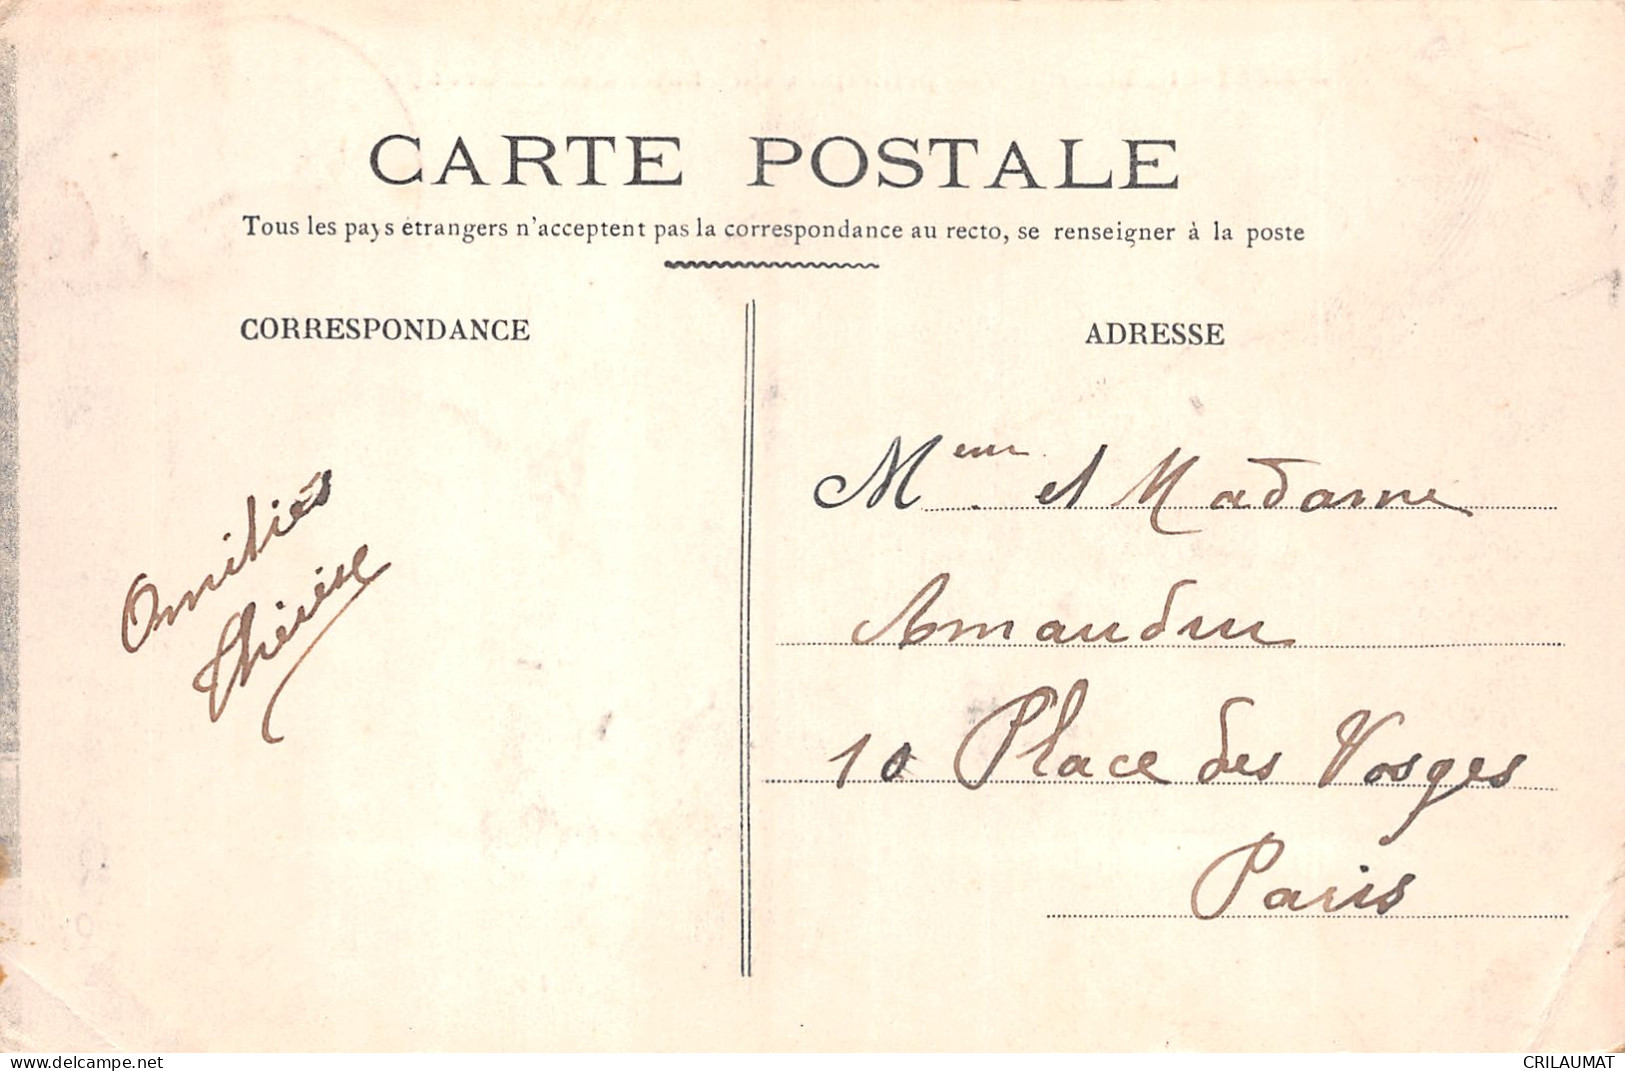 CARTE POSTALE
Tous les pays étrangers n'acceptent pas la correspondance au recto, se renseigner à la poste
CORRESPONDANCE
ADRESSE
Amitiés
Thérèse
M et Madame
10 Place des Vosges
Paris
delcampe.net
CRILAUMAT